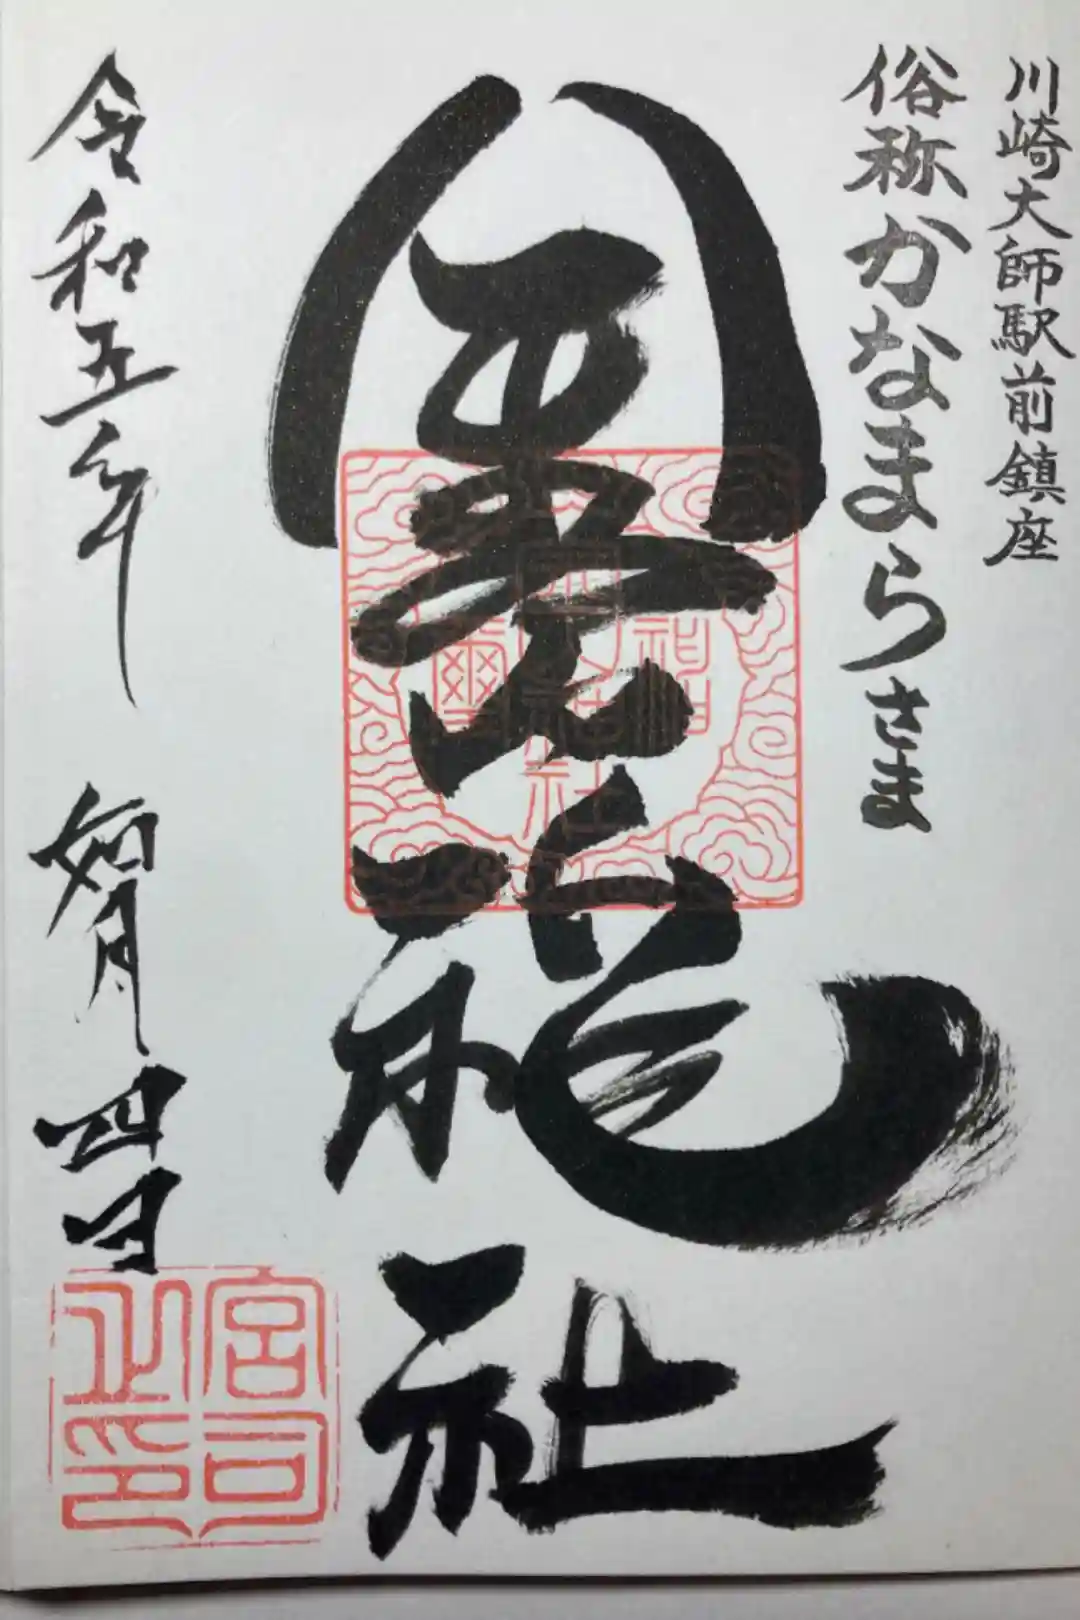 川崎大師駅前鎮座
俗称かなまらさま
金山神社
令和五年 如月四日
宮司
之印